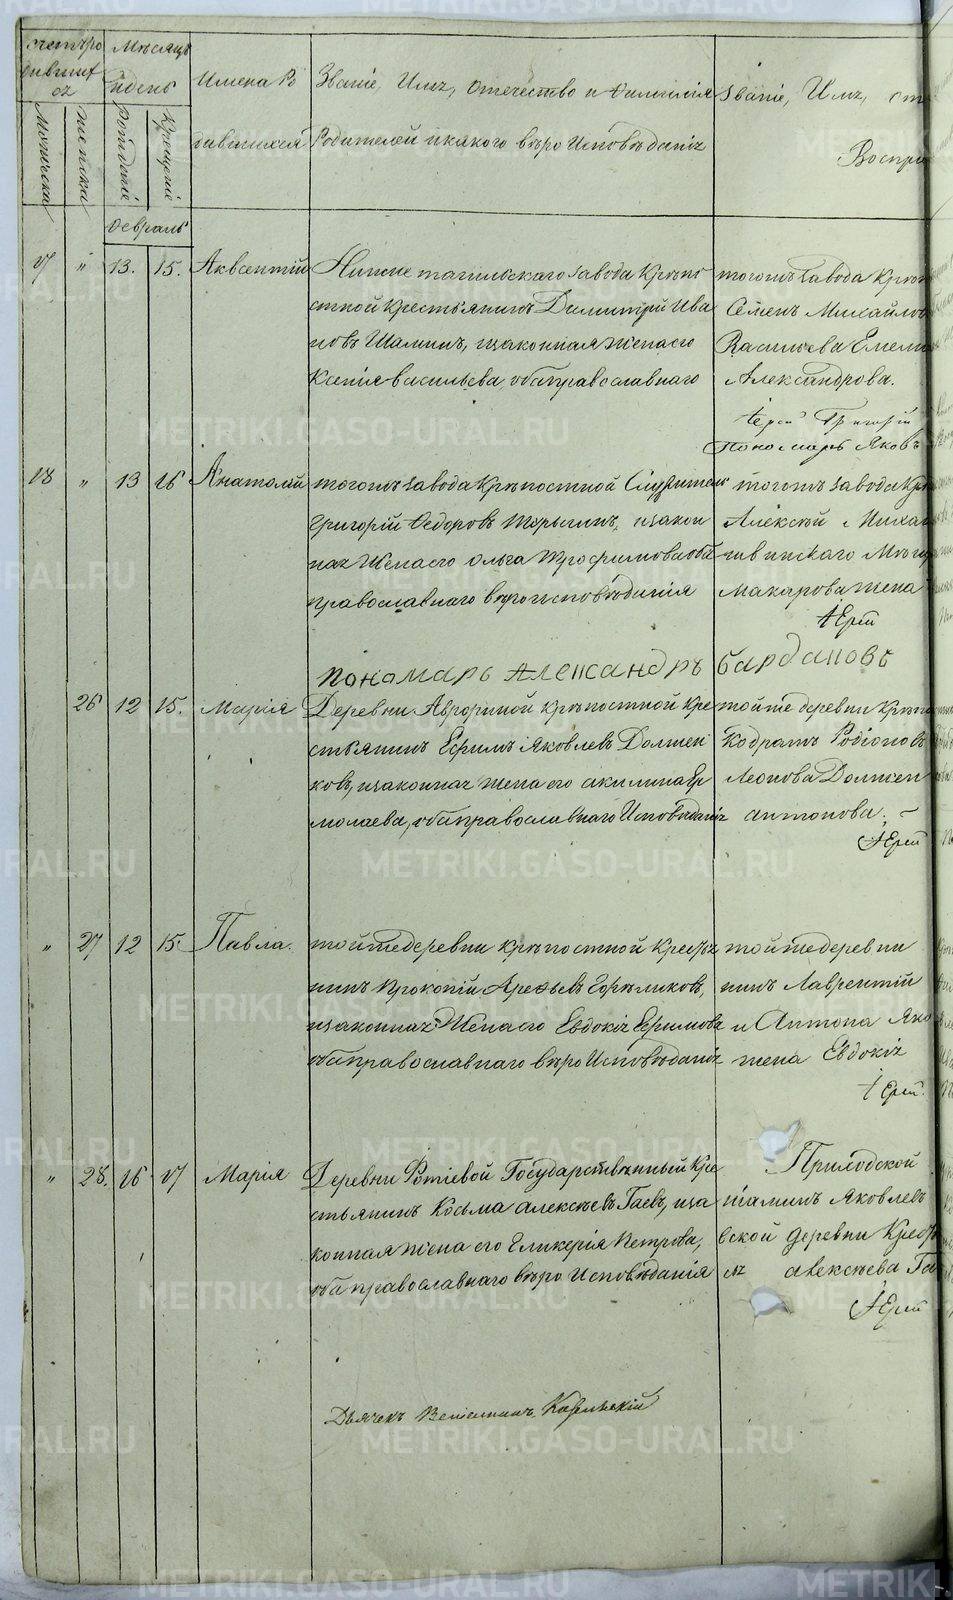 Счетъ ро
дившихся
Мѣсяцъ
и день
Имена Ро
дившихся
Званіе, Имя, отечество и Фамилія
Родителей и какого вѣро Исповѣданія
Званіе, Имя, оте
Воспри
Мужеска
Женска
Рожденіе
Крещеніе
Февраль
17 " 13. 15. Аксентій
Нижне тагильскаго завода Крѣпо
стной Крестьянинъ Димитрій Ива
новъ Шаминъ, и законная жена его
Ксенія васильева, оба православнаго
тогожъ завода Крѣп
Семенъ Михайлов
Васильева Емели
Александрова.
Іерей Григорій
Пономарь Яковъ
18 " 13 16 Анатолій
тогожъ завода Крѣпостной Служитель
Григорій Федоровъ, изакон
ная Жена его Ольга Трофимова оба
православнаго вѣроисповѣданія
тогожъ завода Крѣ
Алексѣй Михай
Макарова жена
Іерей
Пономарь Александръ Бардановъ
26 12 15. Марія
Деревни Аврориной крѣпостной Кре
стьянинъ Ефимъ Яковлевъ Должен
ковъ, изаконная жена его акилина Ер
молаева, оба православнаго Исповѣданія
тойже деревни Крѣпо
Кодратъ Родіоновъ
Леонова Должен
антонова.
Іерей
" 27 12 15. Павла.
тойже деревни крѣпостной Кресть
нинъ Прокопій Арефьевъ Горѣликовъ,
изаконная Жена его Евдокія Ефимова
оба православнаго вѣро Исповѣданія
тойже деревни
нинъ Лаврентій
и Антона Яко
жена Евдокія
Іерей
" 28. 16 17 Марія
Деревни Фотіевой Государственный Кре
стьянинъ Козьма алексѣевъ Гаевъ, иза
конная жена его Гликерія Петрова,
оба православнаго вѣро Исповѣданія
Приходской
Яковлевъ
ской деревни Кресть
алексѣева Га
Іерей
Дьячекъ Веніаминъ
METRIKI.GASO-URAL.RU